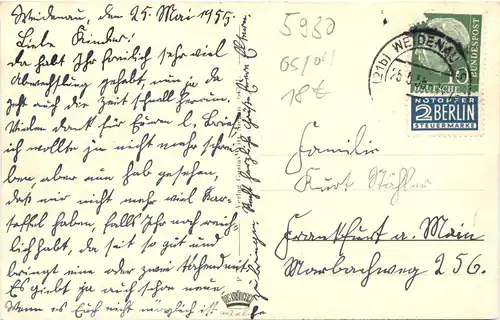 Weidenau, den 25. Mai 1955.
Liebe Kinder!
Da habt Ihr freilich sehr viel
Abwechslung gehabt, nun ja da
geht auch die Zeit schnell herum.
Vielen Dank für Euern l. Brief
ich wollte ja nicht mehr schrei-
ben, aber nun hab gesehen,
daß wir nicht mehr viel Kar-
toffel haben, falls Ihr noch reich-
lich habt, da seit so gut und
bringt eine oder zwei
Es giebt ja auch schon neue,
Wenn es Euch nicht möglich ist
Recht herzliche Grüße Eure Eltern
5980
05/01
18 €
(21b) WEIDENAU
25.5.55
DEUTSCHE BUNDESPOST
10
NOTOPFER
2 BERLIN
STEUERMARKE
Familie
Kurt Stähler
Frankfurt a. Main
Marbachweg 256.